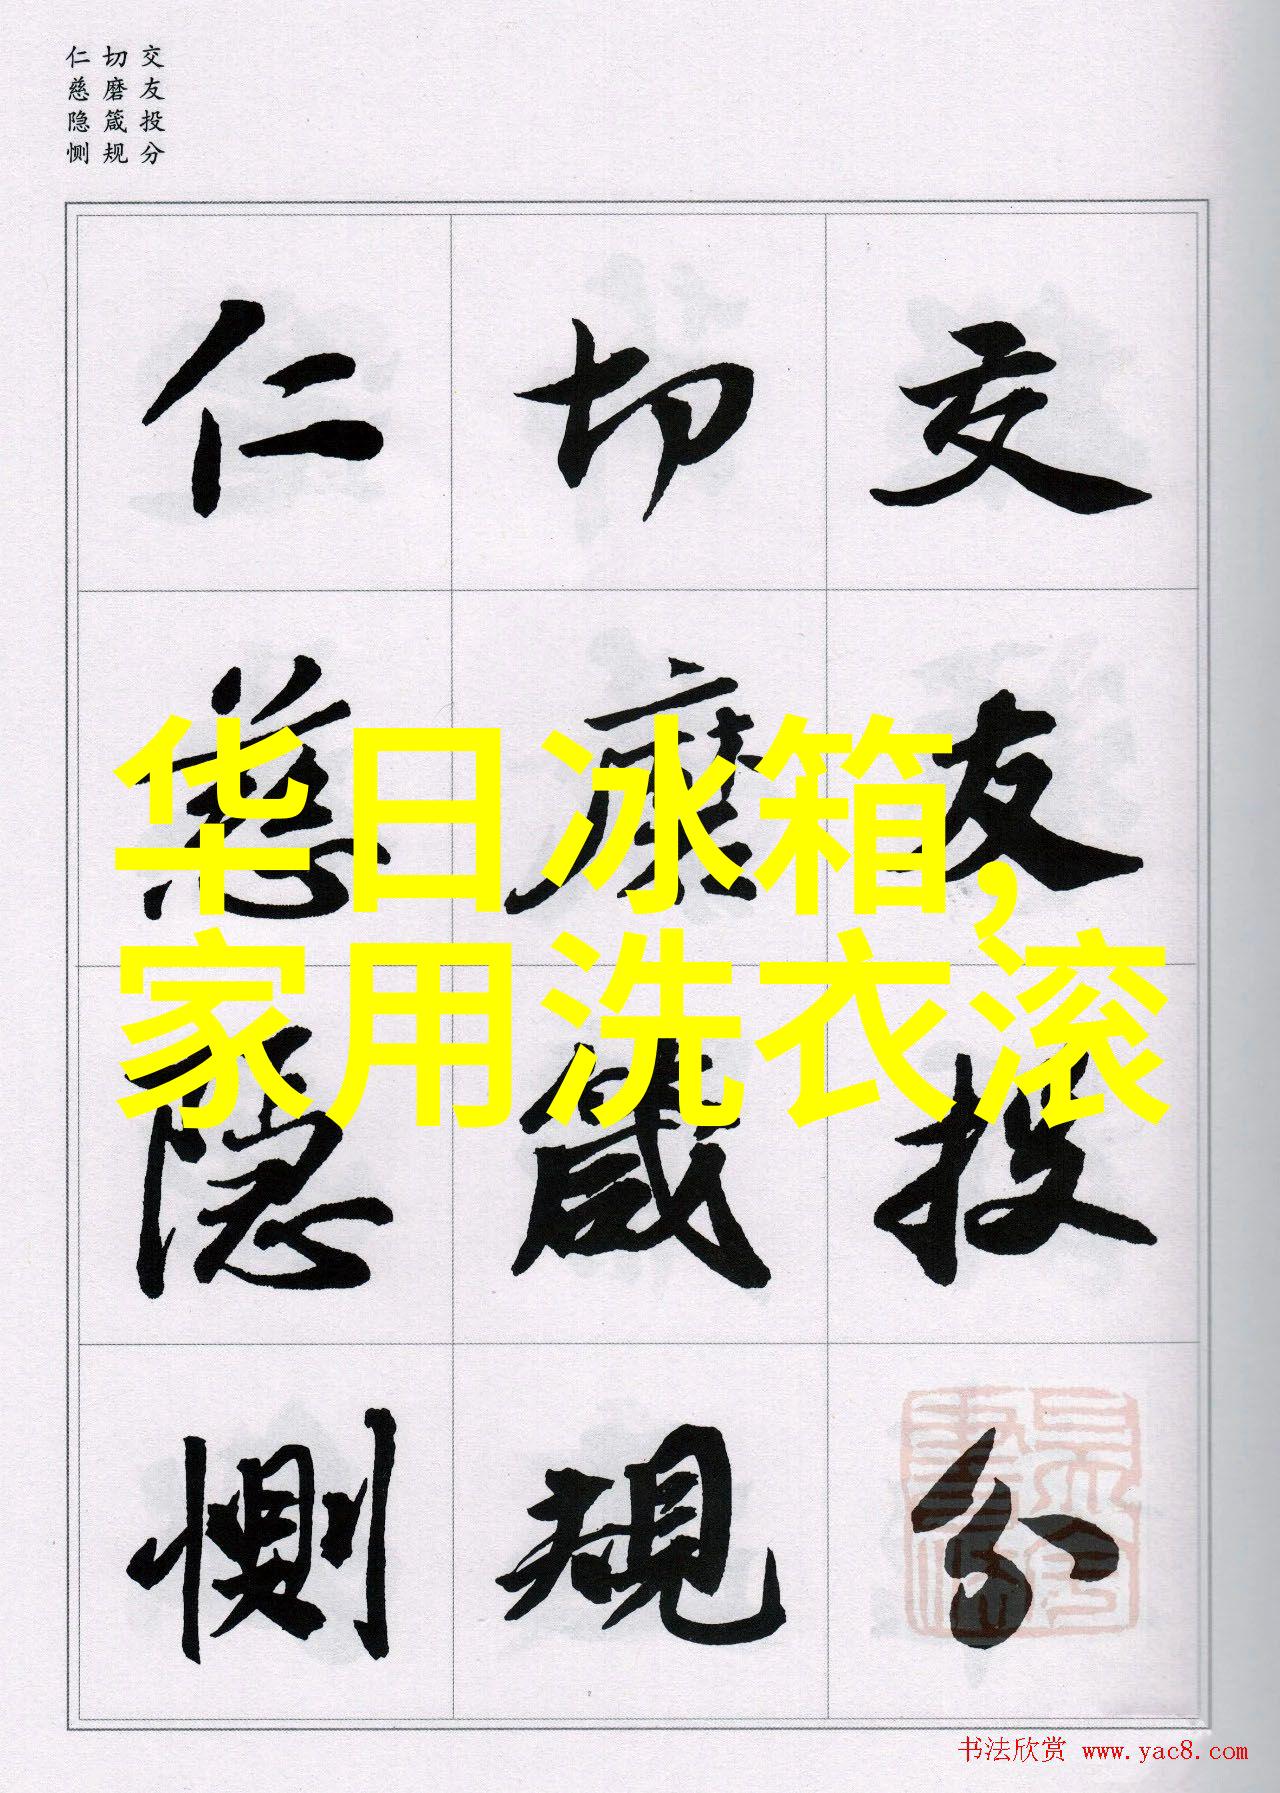 交友投分
切磨箴规
仁慈隐恻
交友投分
切磨箴规
仁慈隐恻
华日冰箱,
家用洗衣滚
书法欣赏 www.yac8.com